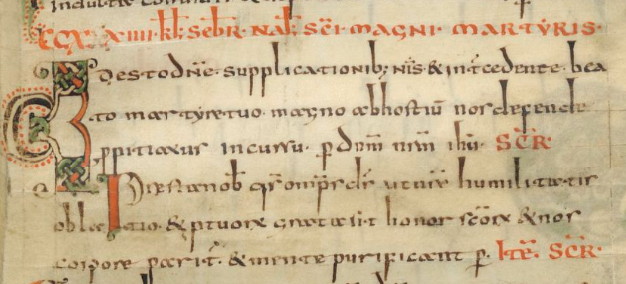 CCX. XIIII kł. SEBR. NAŁ. SCĪ MAGNI MARTYRIS.
Adesto dn̄e supplicationib; nr̄is & int̄cedente bea
to martyre tuo magno ab hostiū nos defende
ppitiatus incursu. p dnm nrm ihm. SCR.
Praesta nob qs omps ds ut nrae humilitatis
oblatio & p tuorꝝ grata sit honor scorꝝ & nos
corpore parit̄ & mente purificant p. ITĒ. SCR.